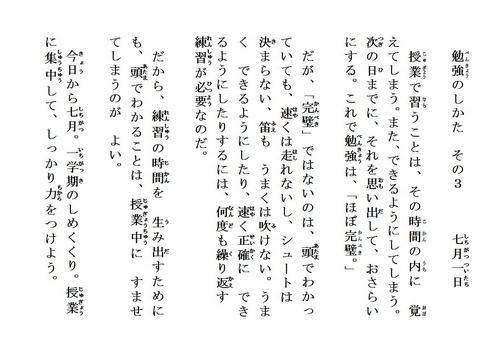 勉強のしかた その3 七月一日
授業で習うことは、その時間の内に 覚
えてしまう。また、できるようにしてしまう。
次の日までに、それを思い出して、おさらい
にする。これで勉強は、「ほぼ完璧。」
だが、「完璧」ではないのは、頭でわかっ
ていても、速くは走れないし、シュートは
決まらない、笛も うまくは吹けない。うま
く できるようにしたり、速く正確に でき
るようにしたりするには、何度も繰り返す
練習が必要なのだ。
だから、練習の時間を 生み出すために
も、頭でわかることは、授業中に すませ
てしまうのが よい。
今日から七月。一学期のしめくくり。授業
に集中して、しっかり力をつけよう。